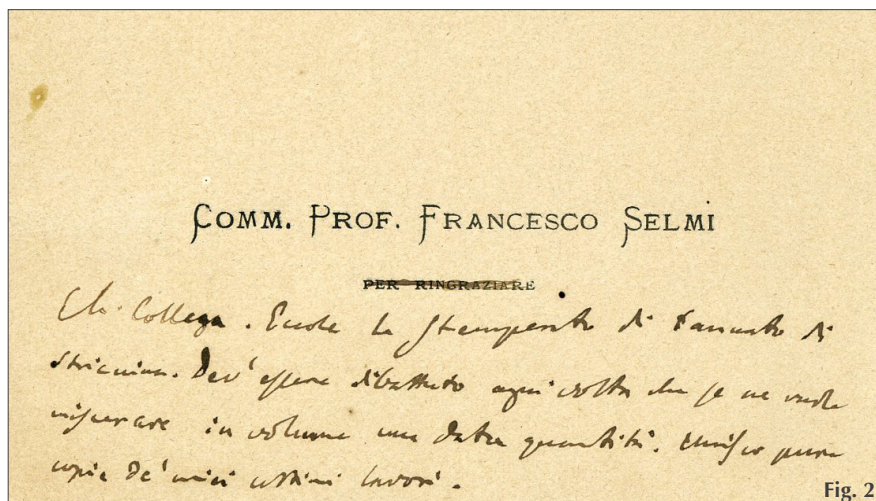 COMM. PROF. FRANCESCO SELMI
PER RINGRAZIARE
Ch. Collega. Eccole lo stemperato di tannato di
stricnina. Dev' essere dibattuto ogni volta che se ne vuole
misurare in volume una data quantità. Unisco pure
copia de' miei ultimi lavori.
Fig. 2